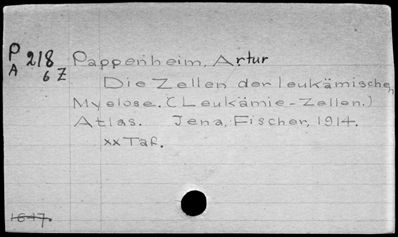 P 218 Pappenheim, Artur
A 6 Z
Die Zellen der leukämischen
Myelose. (Leukämie-Zellen.)
Atlas. Jena, Fischer, 1914.
xx Taf.
1647.